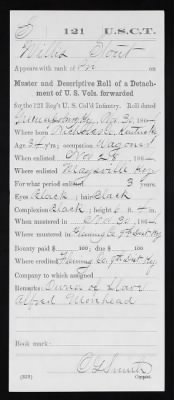 S 121 U.S.C.T.
Stout
Appears with rank of Pvt. on
Muster and Descriptive Roll of a Detach-
ment of U. S. Vols. forwarded
for the 121 Reg't U. S. Col'd Infantry. Roll dated
186
Where born Nicholas Co, Kentucky
Age 34 y'rs; occupation Wagoner
When enlisted Nov 28, 186
Where enlisted Maysville Ky
For what period enlisted 3 years.
Eyes Black; hair Black
Complexion Black; height 6 ft. in.
When mustered in Nov 30, 186
Where mustered in
Bounty paid $ 100; due $ 100
Where credited Fleming Co. 9th Dist Ky
Company to which assigned
Remarks: Owner of Slave
Alfred Morehead
Book mark:
Smith
Copyist.